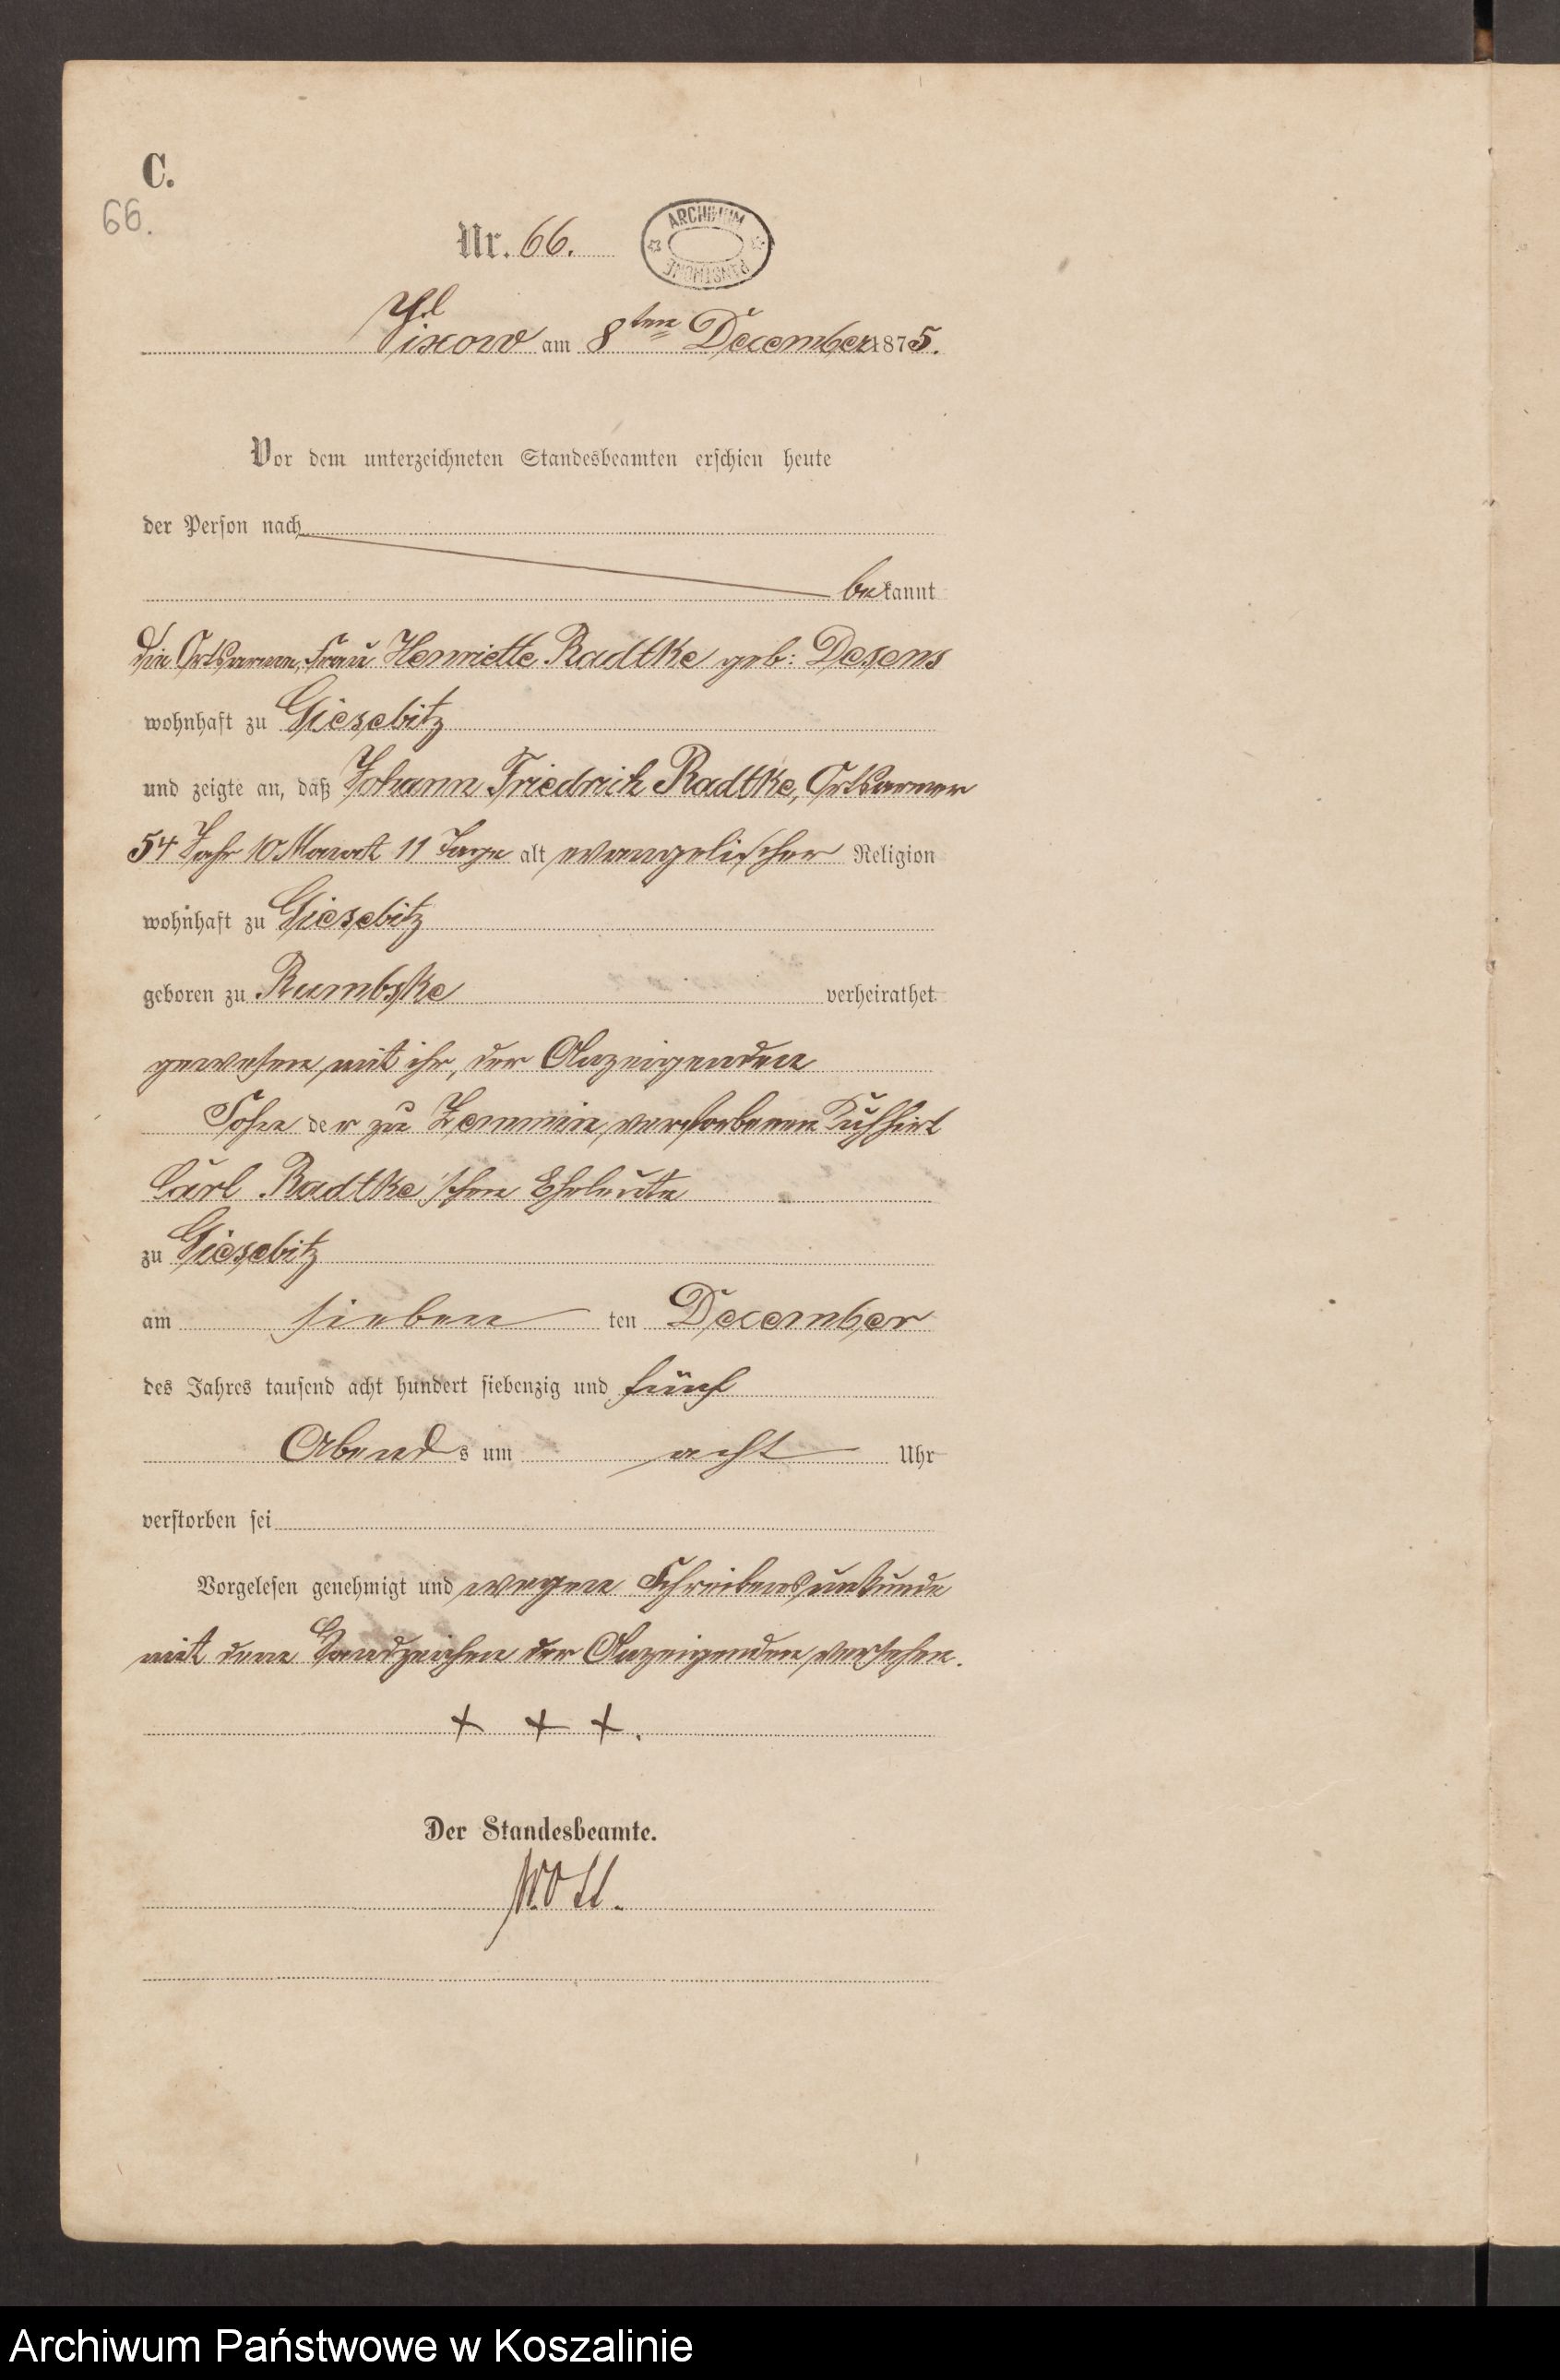 C.
66.
Nr. 66.
ARCHIWUM PAŃSTWOWE
Vixow am 8ten December 1875.
Vor dem unterzeichneten Standesbeamten erschien heute
der Person nach
bekannt
die Ortsarme, Frau Henriette Radtke geb: Desens
wohnhaft zu Giesebitz
und zeigte an, daß Johann Friedrich Radtke, Ortsarmer
54 Jahr 10 Monat 11 Tage alt evangelischer Religion
wohnhaft zu Giesebitz
geboren zu Rumbske verheirathet
gewesen mit ihr, der Anzeigenden
Sohn der zu Zemmin verstorbenen Kuhhirt
Carl Radtke'schen Eheleute
zu Giesebitz
am sieben ten December
des Jahres tausend acht hundert siebenzig und fünf
Abends um acht Uhr
verstorben sei
Vorgelesen genehmigt und wegen Schreibensunkunde
mit dem Handzeichen der Anzeigenden versehen.
+ + +.
Der Standesbeamte.
Archiwum Państwowe w Koszalinie